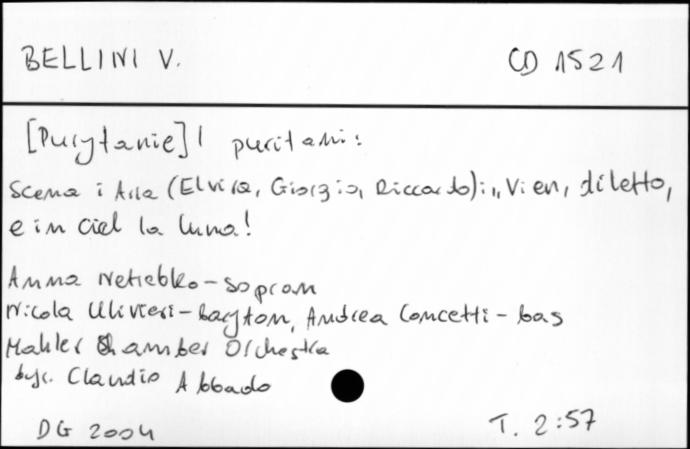 BELLINI V. CD 1521
[Purytanie] I puritani:
Scena i Aria (Elvira, Giorgio, Riccardo): „Vien, diletto,
e in ciel la luna!
Anna Netrebko - sopran
Nicola Ulivieri - baryton, Andrea Concetti - bas
Mahler Chamber Orchestra
dyr. Claudio Abbado
DG 2004 T. 2:57